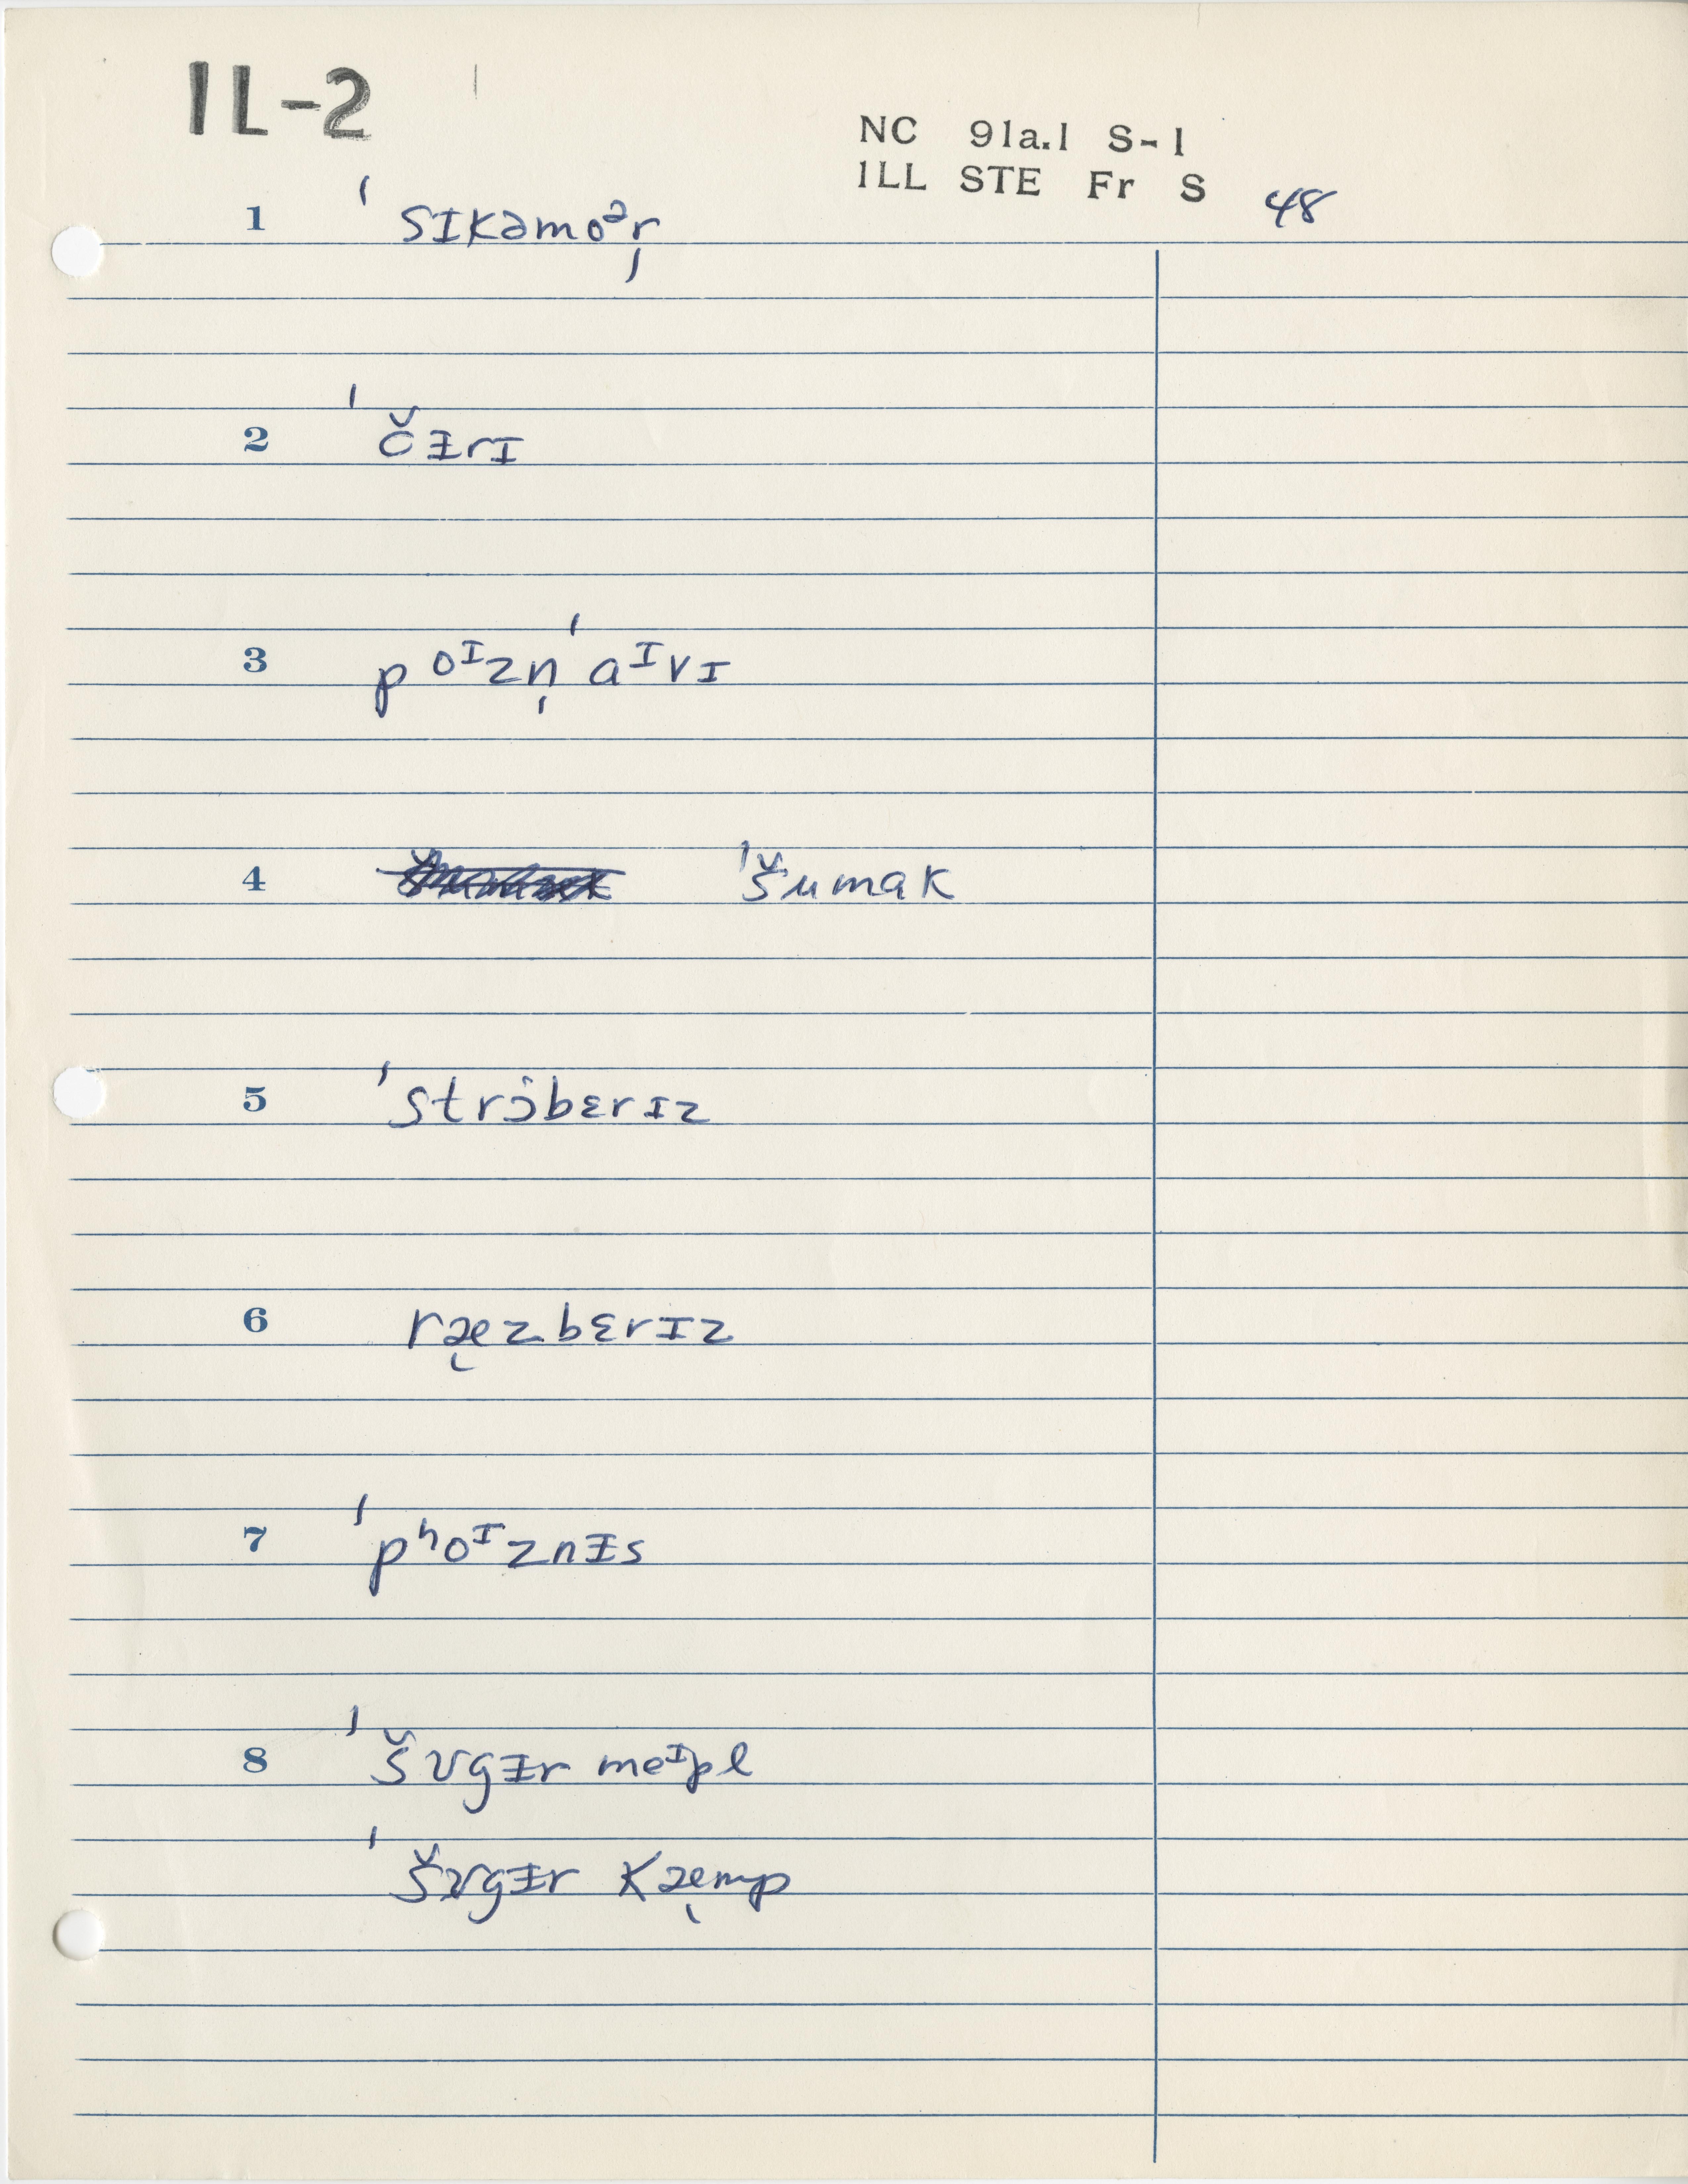 IL-2
NC 91a.1 S-1
ILL STE Fr S 48
1 ˈsɪkəmoᵊr̩
2 ˈčɪ̵rɪ
3 poᶦzn̩ ˈaᶦvɪ
4 ˈšumak
5 ˈstrɔbɛrɪz
6 ræ̨zbɛrɪz
7 ˈpʰoᶦznɪ̵s
8 ˈšʊgɪ̵r meᶦpl
ˈšʊgɪ̵r kæ̨mp